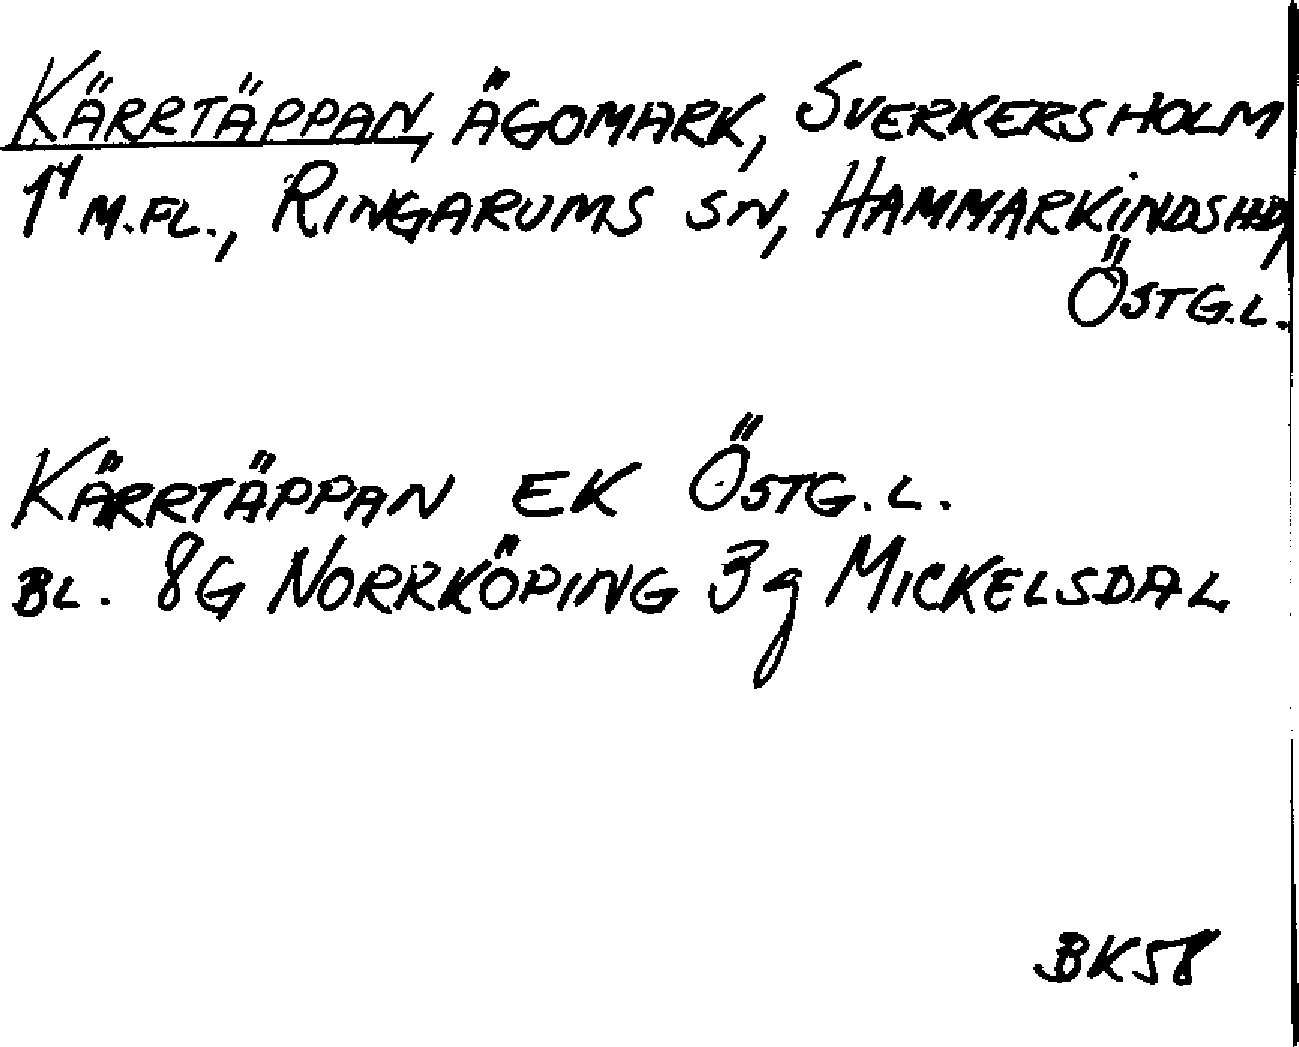 KÄRRTÄPPAN, ÄGOMARK, SVERKERSHOLM
1¹ M.FL., RINGARUMS SN, HAMMARKINDS HD,
ÖSTG.L.
KÄRRTÄPPAN EK ÖSTG.L.
BL. 8G NORRKÖPING 3g MICKELSDAL
BK58